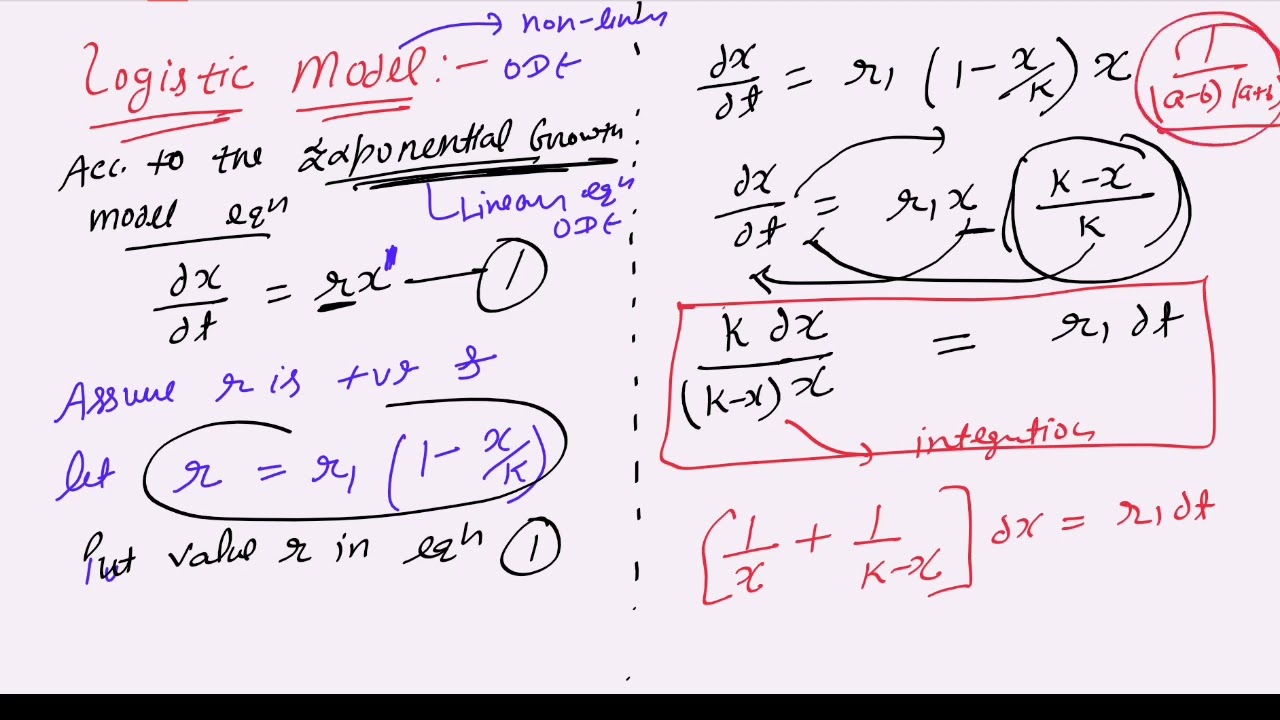 Logistic Model :-
non-linear
ODE
Acc. to the Exponential Growth
model eqn
Linear eqn
ODE
dx/dt = rx — 1
Assume r is +ve &
let r = r₁ (1 - x/k)
Put value r in eqn 1
dx/dt = r₁ (1 - x/k) x
1/(a-b)(a+b)
dx/dt = r₁x (k-x/k)
k dx/(k-x)x = r₁ dt
integration
[1/x + 1/k-x] dx = r₁ dt